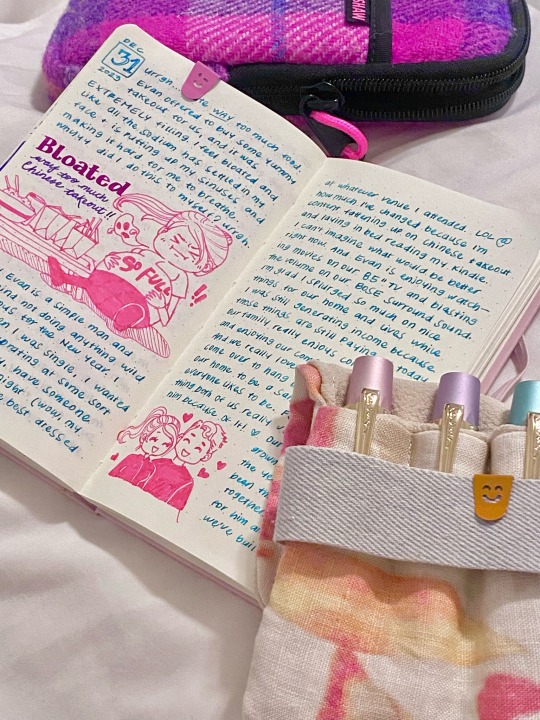 DEC
31
2023
way too much food
Evan offered to buy some yummy
takeout for us, and it was
EXTREMELY filling. I feel bloated and
like all the sodium has settled in my
face & is puffing up my sinuses and
making it hard for me to breathe.
Whyyy did I do this to myself?
Bloated
way too much
Chinese takeout!!
SO FULL
!!!
Evan is a simple man and
not doing anything wild
for the New Year.
when I was single, I wanted
at some sort
have someone
(wow, my
best dressed
at whatever venue I attended. LOL
how much I've changed because I'm
content fattening up on Chinese takeout
and laying in bed reading my Kindle.
I can't imagine what would be better
right now, and Evan is enjoying watch-
ing movies on our 85" TV and blasting
the volume on our BOSE surround sound.
I'm glad I splurged so much on nice
things for our home and lives while
I was still generating income because
most things are still paying
our family really enjoys
and enjoying our
and we really love
come over to hang
our home to be a
everyone likes to be.
thing both of us really
own because of it!
our
grown
the
been
together
for him
we've
SHAW